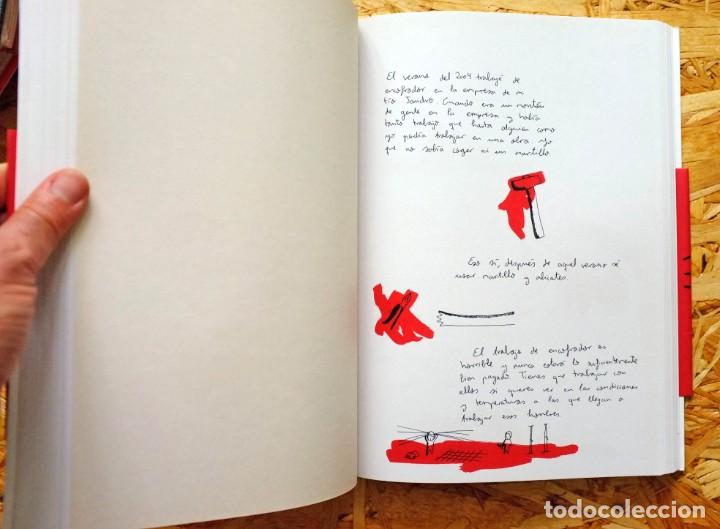 El verano del 2004 trabajé de
encofrador en la empresa de mi
tío Jandro. Cuando era un montón
de gente en la empresa y había
tanto trabajo que hasta alguien como
yo podía trabajar en una obra. Yo
que no sabía coger ni un martillo.
Eso sí, después de aquel verano sé
usar martillo y alicates.
El trabajo de encofrador es
horrible y nunca estará lo suficientemente
bien pagado. Tienes que trabajar con
ellos si quieres ver en las condiciones
y temperaturas a las que llegan a
trabajar esos hombres.
todocoleccion